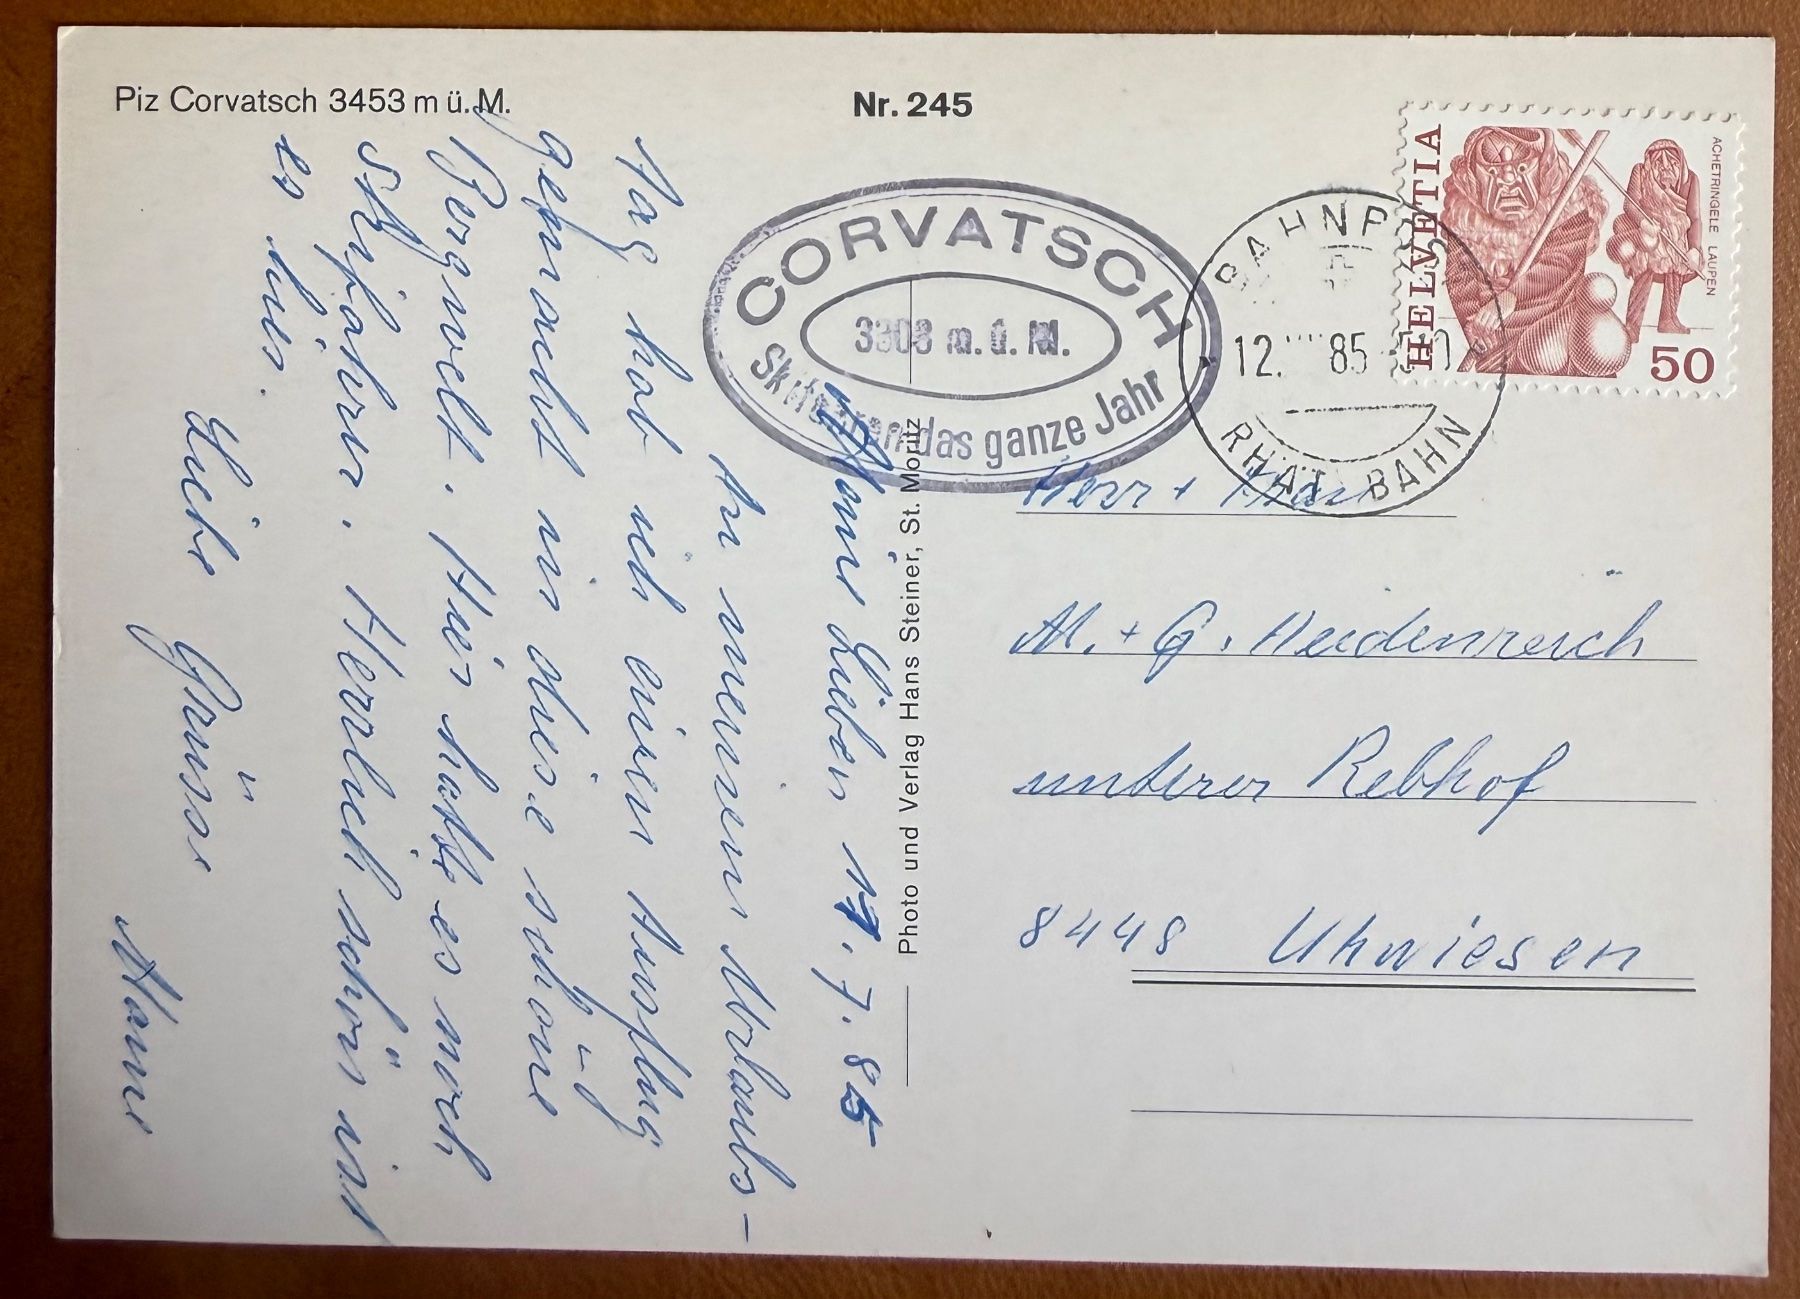 Piz Corvatsch 3453 m ü. M.
Nr. 245
HELVETIA
ACHETRINGELE LAUPEN
50
CORVATSCH
3303 m. ü. M.
Skifahren das ganze Jahr
BAHNP
12. 85
RHÄT. BAHN
Meine Lieben 11. 7. 85
An meinem Urlaubs-
tag hab ich einen Ausflug
gemacht in diese schöne
Bergwelt. Hier hatte es noch
Skifahrer. Herrlich schön ist
es hier.
Liebe Grüsse
Photo und Verlag Hans Steiner, St. Moritz
Herr + Frau
M. + G. Heidenreich
unterer Rebhof
8448 Uhwiesen